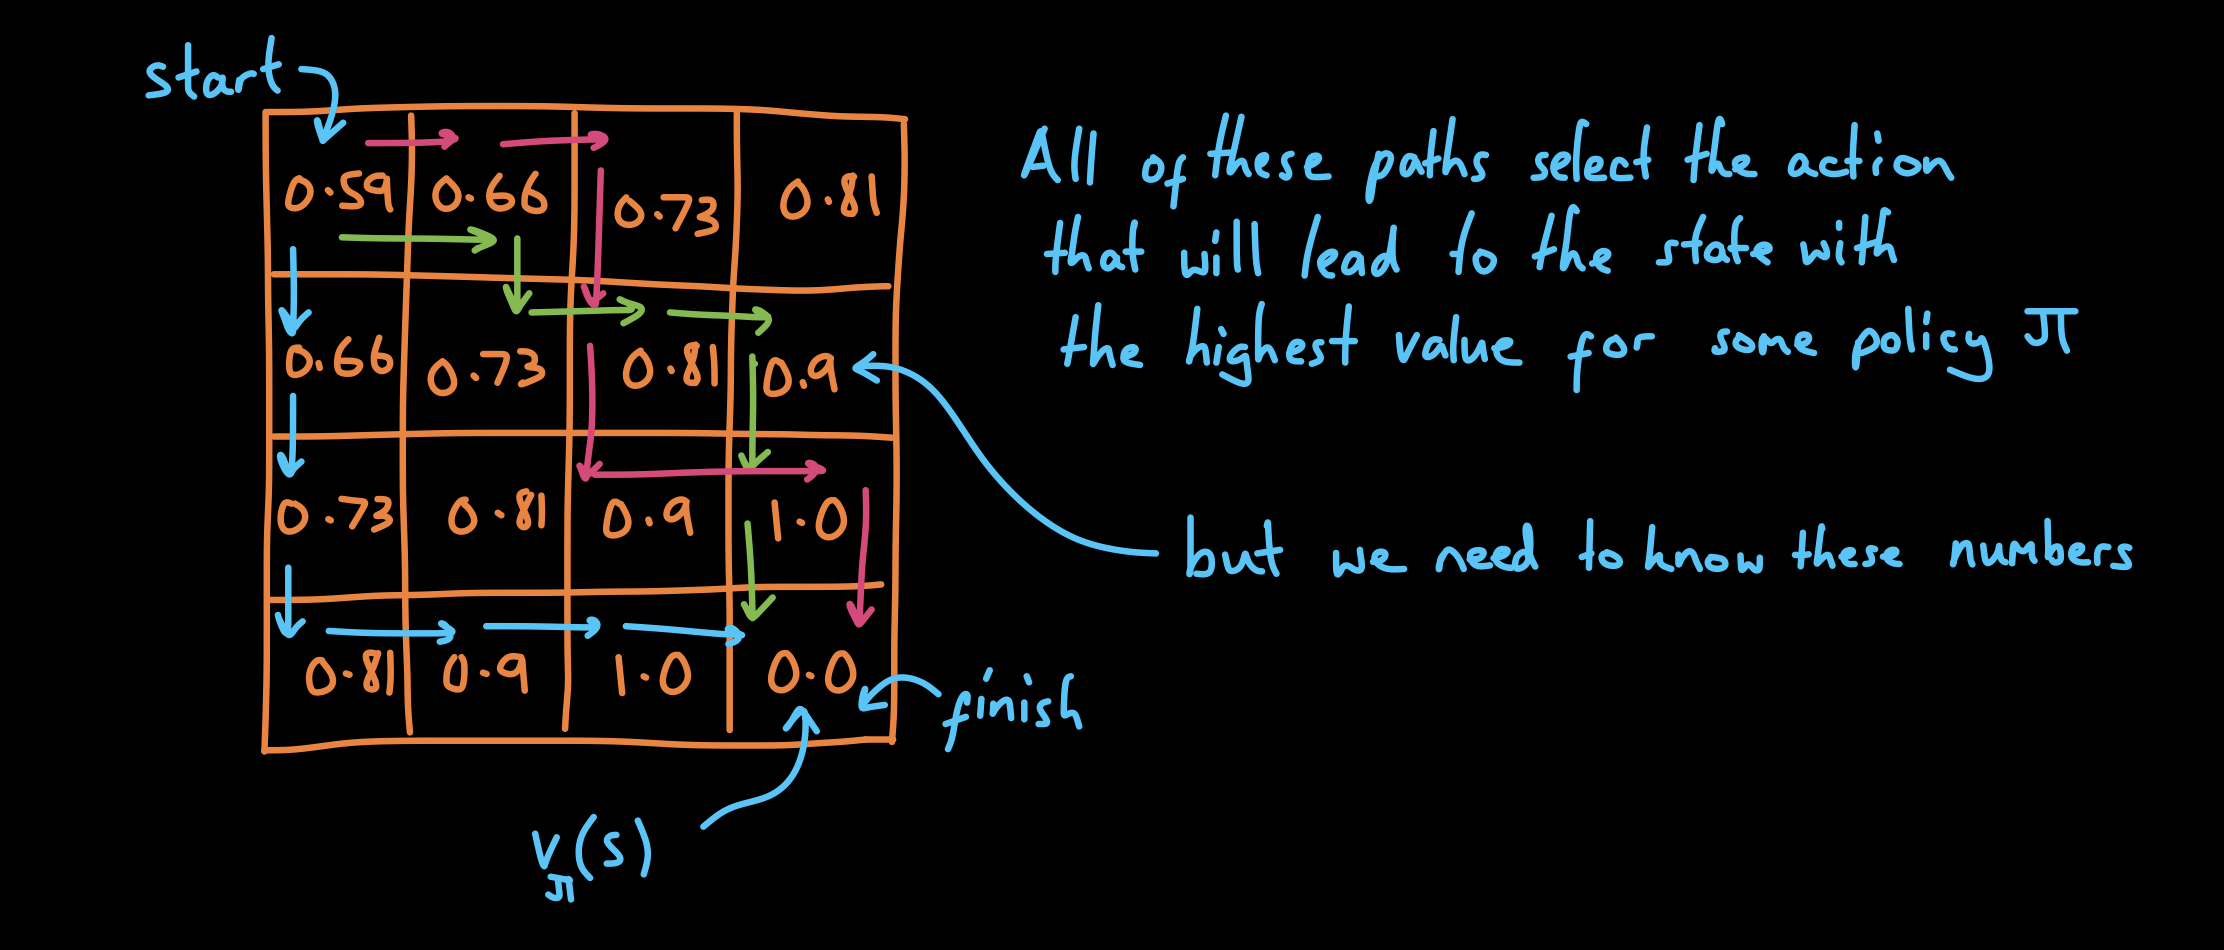 start
0.59 0.66 0.73 0.81
0.66 0.73 0.81 0.9
0.73 0.81 0.9 1.0
0.81 0.9 1.0 0.0
finish
V_π(s)
All of these paths select the action
that will lead to the state with
the highest value for some policy π
but we need to know these numbers